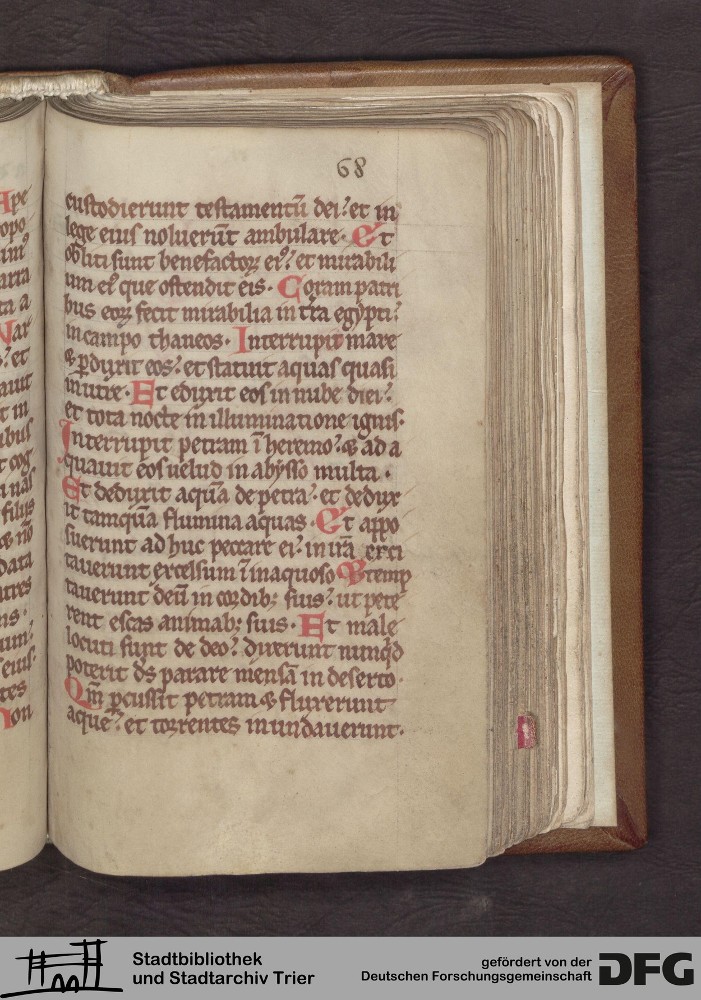 68
custodierunt testamentū dei.᾿ et in
lege eius noluerūt ambulare. Et
obliti sunt benefactoꝝ eiꝰ.᾿ et mirabili
um eiꝰ que ostendit eis. Coram patri
bus eoꝝ fecit mirabilia in tr̄a egypti.᾿
in campo thaneos. Interrupit mare
& ꝑduxit eos.᾿ et statuit aquas quasi
in utre. Et eduxit eos in nube diei.᾿
et tota nocte in illuminatione ignis.
Interrupit petram ī heremo.᾿ & ad a
quauit eos uelud in abysso multa.
Et deduxit aquā de petra.᾿ et dedux
it tamquā flumina aquas. Et appo
suerunt ad huc peccare ei.᾿ in irā exci
tauerunt excelsum ī inaquoso. Et temp
tauerunt deū in coꝛdibꝫ suis.᾿ ut pete
rent escas animabꝫ suis. Et male
locuti sunt de deo.᾿ dixerunt nunqͥd
poterit ds̄ parare mensā in deserto.
Qm̄ ꝑcussit petram & fluxerunt
aque.᾿ et toꝛrentes inundauerunt.
Stadtbibliothek
und Stadtarchiv Trier
gefördert von der
Deutschen Forschungsgemeinschaft
DFG